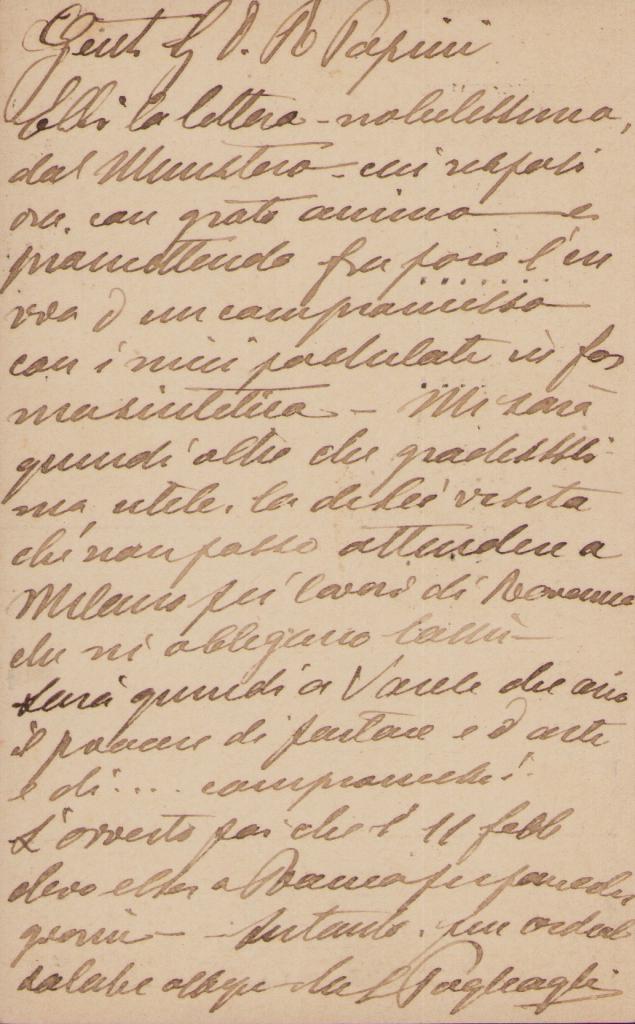 Gent. D. R Papini
Ebbi la lettera - nobilissima,
dal Ministero - cui risposi
ora, con grato animo - e
promettendo fra poco l'in
vio d'un compromesso
con i miei postulati in for
ma sintetica - Mi sarà
quindi oltre che graditissi
ma utile, la di lei visita
che non posso attendere a
Milano per i lavori di Ravenna
che mi obbligano
Sarà quindi a Varese che avrò
il piacere di parlare e d'arte
e di.... compromessi.
L'avverto poi che l' 11 febb
devo esser a Roma per pochi
giorni - Intanto, per
Pogliaghi